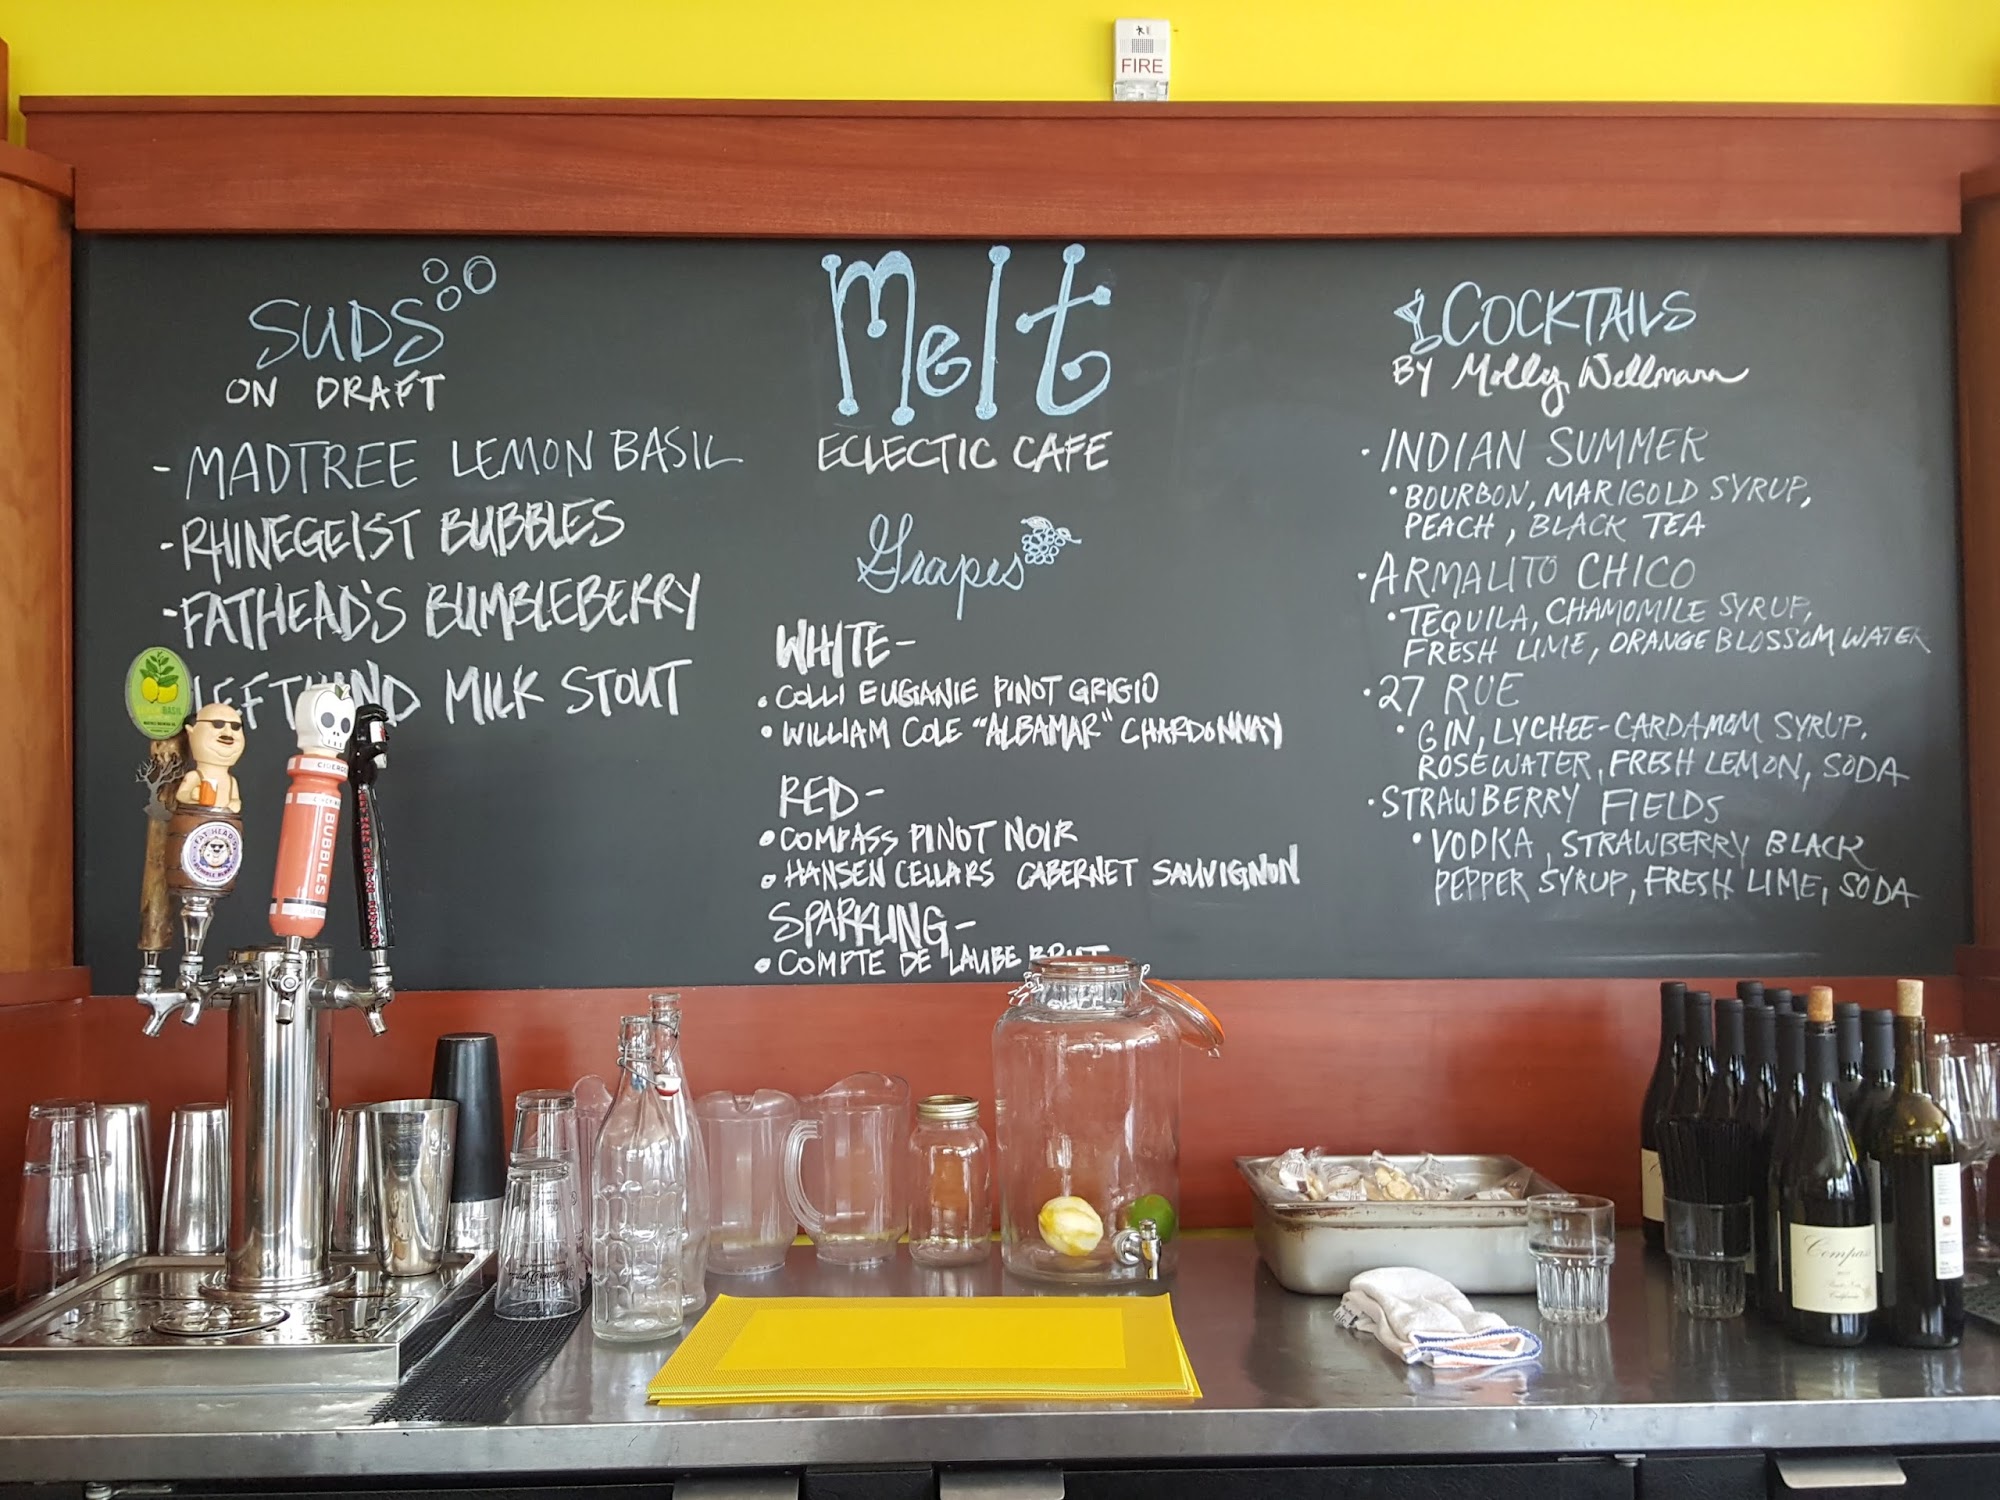 FIRE
SUDS
ON DRAFT
- MADTREE LEMON BASIL
- RHINEGEIST BUBBLES
- FATHEAD'S BUMBLEBERRY
LEFTHAND MILK STOUT
Melt
ECLECTIC CAFE
Grapes
WHITE-
• COLLI EUGANIE PINOT GRIGIO
• WILLIAM COLE "ALBAMAR" CHARDONNAY
RED-
• COMPASS PINOT NOIR
• HANSEN CELLARS CABERNET SAUVIGNON
SPARKLING-
• COMPTE DE LAUBE BRUT
COCKTAILS
BY Molly Wellmann
• INDIAN SUMMER
• BOURBON, MARIGOLD SYRUP,
PEACH, BLACK TEA
• ARMALITO CHICO
• TEQUILA, CHAMOMILE SYRUP,
FRESH LIME, ORANGE BLOSSOM WATER
• 27 RUE
• GIN, LYCHEE-CARDAMOM SYRUP,
ROSEWATER, FRESH LEMON, SODA
• STRAWBERRY FIELDS
• VODKA, STRAWBERRY BLACK
PEPPER SYRUP, FRESH LIME, SODA
BASIL
FAT HEAD'S
BUBBLES
Compass
Pinot Noir
California